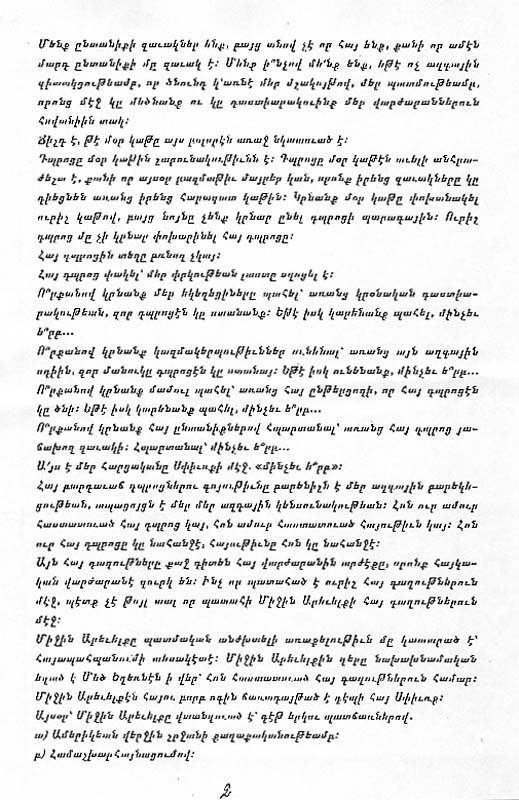 Մենք ընտանիքի զաւակներ ենք, բայց անով չէ որ հայ ենք, քանի որ ամէն
մարդ ընտանիքի մը զաւակ է։ Մենք ի՞նչով մե՛նք ենք, եթէ ոչ ազգային
գիտակցութեամբ, որ ծնունդ կ՚առնէ մեր մշակոյթով, մեր պատմութեամբ,
որոնց մէջ կը մեծնանք ու կը դաստիարակուինք մեր վարժարաններուն
հովանիին տակ։
Ճիշդ է, թէ մօր կաթը այս բոլորէն առաջ նկատուած է։
Դպրոցը մօր կաթին շարունակութիւնն է։ Դպրոցը մօր կաթէն ուելի անհրա-
ժեշտ է, քանի որ այսօր բազմաթիւ մայրեր կան, որոնք իրենց զաւակները կը
դիեցնեն առանց իրենց հարազատ կաթին։ Կրնանք մօր կաթը փոխանակել
ուրիշ կաթով, բայց նոյնը չենք կրնար ընել դպրոցի պարագային։ Ուրիշ
դպրոց մը չի կրնար փոխարինել հայ դպրոցը։
Հայ դպրոցին տեղը բռնող չկայ։
Հայ դպրոց փակել՝ մեր փրկութեան լաստը այրել է։
Ո՞րքանով կրնանք մեր եկեղեցիները պահել՝ առանց կրօնական դաստիա-
րակութեան, զոր դպրոցէն կը ստանանք։ Եթէ իսկ կարենանք պահել, մինչեւ
ե՞րբ...
Ո՞րքանով կրնանք կազմակերպութիւններ ունենալ՝ առանց այն ազգային
ոգիին, զոր մանուկը դպրոցէն կը ստանայ։ Եթէ իսկ ունենանք, մինչեւ ե՞րբ...
Ո՞րքանով կրնանք մամուլ պահել՝ առանց հայ ընթերցողի, որ հայ դպրոցէն
կը ծնի։ Եթէ իսկ կարենանք պահել, մինչեւ ե՞րբ...
Ո՞րքանով կրնանք հայ ընտանիքներով հպարտանալ՝ առանց հայ դպրոց յա-
ճախող զաւակի։ Հպարտանալ՝ մինչեւ ե՞րբ...
Ա՛յս է մեր հարցականը Սփիւռքի մէջ. «մինչեւ ե՞րբ»։
Հայ բարգաւաճ դպրոցներու գոյութիւնը բարենիշն է մեր ազգային բարեկե-
ցութեան, ապացոյցն է մեր մեր ազգային կենսունակութեան։ Հոն ուր ամուր
հաստատուած հայ դպրոց կայ, հոն ամուր հաստատուած հայութիւն կայ։ Հոն
ուր հայ դպրոցը կը նահանջէ, հայութիւնը հոն կը նահանջէ։
Այն հայ գաղութները քաջ գիտեն հայ վարժարանին արժէքը, որոնք հայկա-
կան վարժարանէ զուրկ են։ Ինչ որ պատահած է ուրիշ հայ գաղութներուն
մէջ, պէտք չէ թոյլ տալ որ պատահի Միջին Արեւելքի հայ գաղութներուն
մէջ։
Միջին Արեւելքը պատմական անժխտելի առաքելութիւն մը կատարած է՝
հայապահպանումի տեսակէտէ։ Միջին Արեւելքին դերը նախախնամական
եղած է Մեծ Եղեռնէն ի վեր՝ հոն հաստատուած հայ գաղութներուն համար։
Միջին Արեւելքէն հայու բոբբ ոգին ճառագայթած է դէպի հայ Սփիւռք։
Այսօր՝ Միջին Արեւելքը վտանգուած է՝ գէթ երկու պատճառներով.
ա) Ամերիկեան վերջին շրջանի քաղաքականութեամբ։
բ) Համաշխարհայնացումով։
2